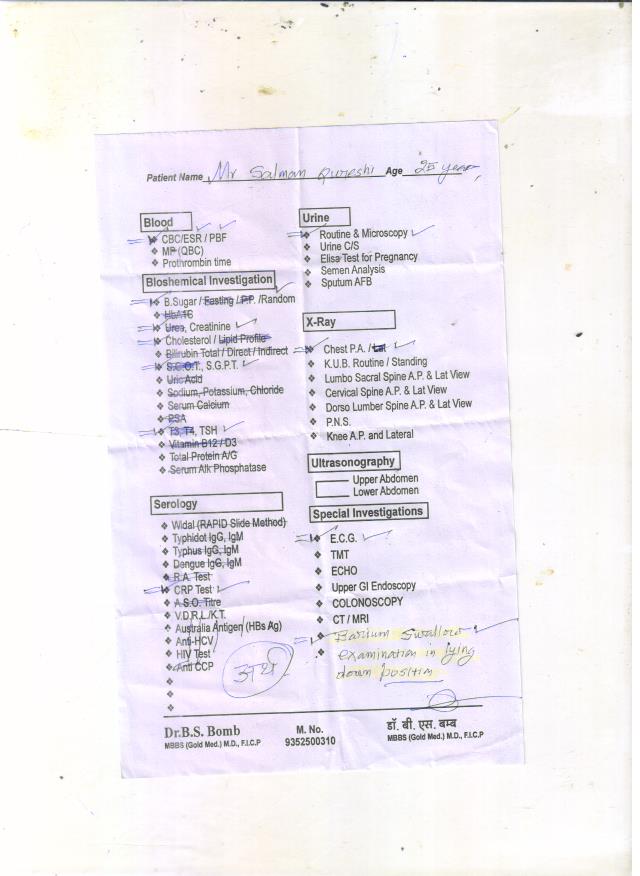 Patient Name Mr Salman Qureshi Age 25 year
Blood
CBC/ESR / PBF
MP (QBC)
Prothrombin time
Bioshemical Investigation
B.Sugar / Easting / P.P. /Random
HbA1B
Urea, Creatinine
Cholesterol / Lipid Profile
Bilirubin Total / Direct / Indirect
S.C.O.T., S.G.P.T.
Uric Acid
Sodium, Potassium, Chloride
Serum Calcium
PSA
T3, T4, TSH
Vitamin B12 / D3
Total Protein A/G
Serum Alk Phosphatase
Serology
Widal (RAPID Slide Method)
Typhidot IgG, IgM
Typhus IgG, IgM
Dengue IgG, IgM
R.A. Test
CRP Test
A.S.O. Titre
V.D.R.L./K.T.
Australia Antigen (HBs Ag)
Anti-HCV
HIV Test
Anti CCP
Urine
Routine & Microscopy
Urine C/S
Elisa Test for Pregnancy
Semen Analysis
Sputum AFB
X-Ray
Chest P.A. / Lat
K.U.B. Routine / Standing
Lumbo Sacral Spine A.P. & Lat View
Cervical Spine A.P. & Lat View
Dorso Lumber Spine A.P. & Lat View
P.N.S.
Knee A.P. and Lateral
Ultrasonography
Upper Abdomen
Lower Abdomen
Special Investigations
E.C.G.
TMT
ECHO
Upper GI Endoscopy
COLONOSCOPY
CT / MRI
Barium Swallow
examination in lying
down position
Dr.B.S. Bomb
MBBS (Gold Med.) M.D., F.I.C.P
M. No.
9352500310
डॉ. बी. एस. बम्ब
MBBS (Gold Med.) M.D., F.I.C.P